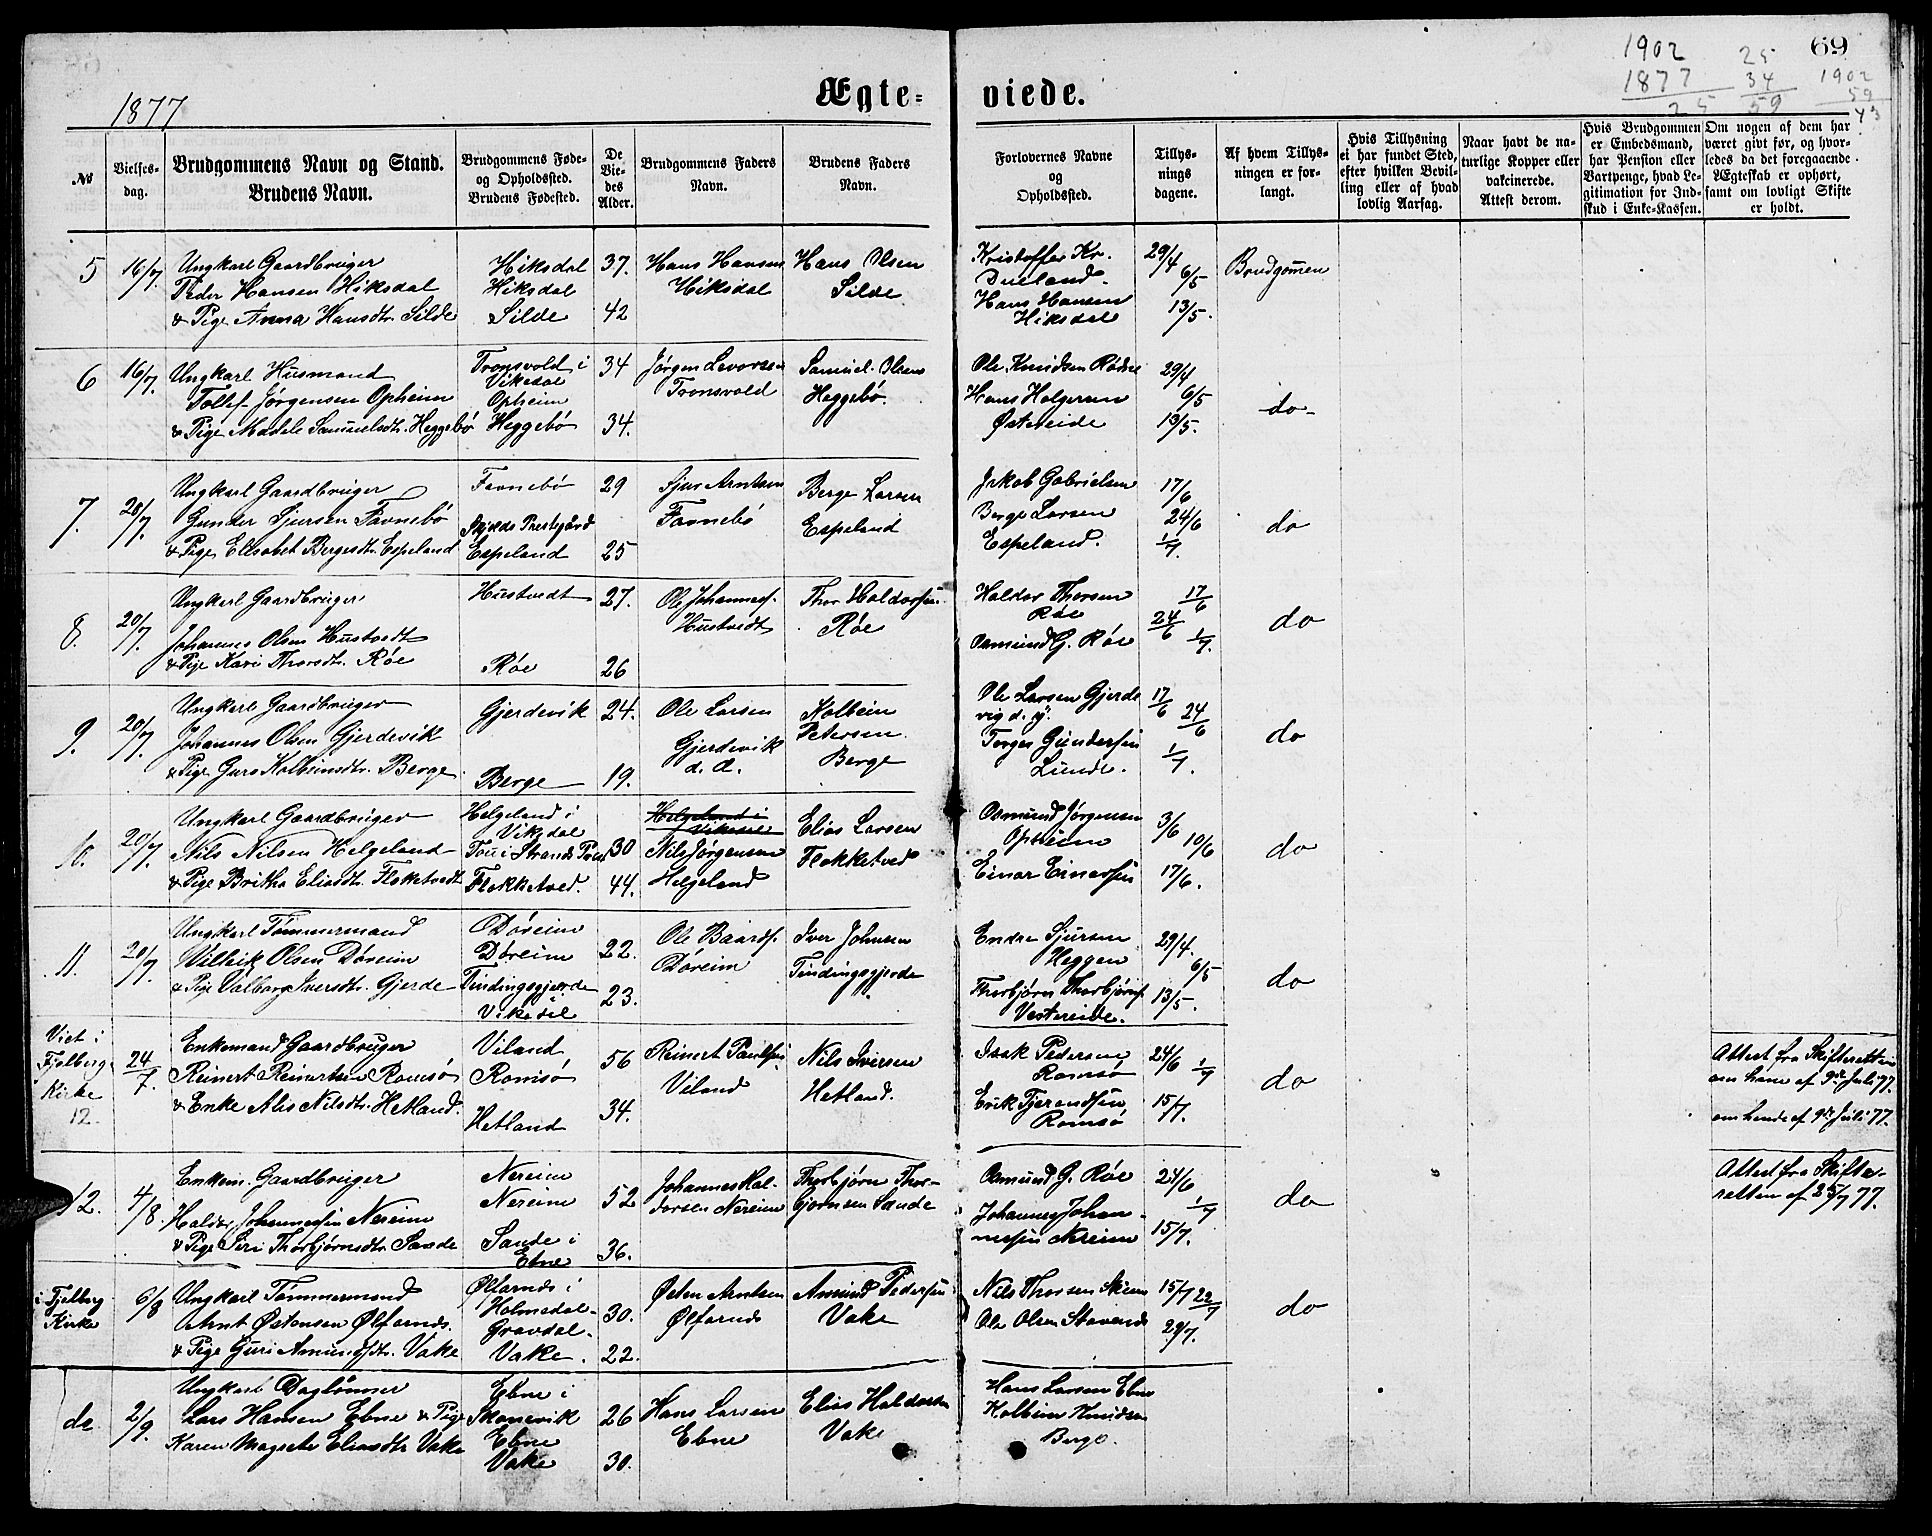 1877
Ægte-viede.
69
1902
1877
25
25
34
59
1902
59
43
№
Vielses-dag.
Brudgommens Navn og Stand.
Brudens Navn.
Brudgommens Føde-
og Opholdssted.
Brudens Fødested.
De
Vie-
des
Alder.
Brudgommens Faders
Navn.
Brudens Faders
Navn.
Forlovernes Navne
og
Opholdssted.
Tillys-
nings
dagene.
Af hvem Tillys-
ningen er for-
langt.
Hvis Tillysning
ei har fundet Sted,
efter hvilken Bevil-
ling eller af hvad
lovlig Aarsag.
Naar havt de na-
turlige Kopper eller
vakcinerede.
Attest derom.
Hvis Brudgommen
er Embedsmand,
har Pension eller
Vartpenge, hvad Le-
gitimation for Ind-
skud i Enke-Kassen.
Om nogen af dem har
været givt før, og hvor-
ledes da det foregaaende
Ægteskab er ophørt,
samt om lovligt Skifte
er holdt.
5
16/7.
Ungkarl Gaardbruger
Peder Hansen Hiksdal
& Pige Anna Hansdtr. Silde
Hiksdal
Hiksdal
Silde
37.
42
Hans Hansen
Hiksdal
Hans Olsen
Silde
Kristoffer Kr.
Dueland.
Hans Hansen
Hiksdal
29/4
6/5
13/5.
Brudgomen
6
16/7.
Ungkarl Husmand
Tollef Jørgensen Opheim
& Pige Madele Samuelsdtr. Heggebø
Tronsvold i
Vikedal
Opheim
Heggebø
34
34.
Jørgen Levorsen
Tronsvold
Samuel Olsen
Heggebø.
Ole Knudsen Rødne
Hans Helgesen
Østereide
29/4
6/5
13/5.
do
7.
20/7.
Ungkarl Gaardbruger
Gunder Sjursen Favnebø
& Pige Elisabet Bergesdtr. Espeland
Favnebø
Skjolds Prestegård
Espeland
29
25
Sjur Arntsen
Favnebø
Berge Larsen
Espeland
Jakob Gabrielsen
Berge Larsen
Espeland.
17/6
24/6
1/7.
do
8.
20/7.
Ungkarl Gaardbruger
Johannes Olsen Hustvedt
& Pige Kari Thorsdtr. Røe
Hustvedt
Røe
27.
26
Ole Johannesf.
Hustvedt
Thor Haldorsen
Røe
Haldor Thorsen
Røe
Osmund G. Røe
17/6
24/6
1/7.
do
9.
20/7.
Ungkarl Gaardbruger
Johannes Olsen Gjerdevik
& Pige Guro Kolbeinsdtr. Berge.
Gjerdevik
Berge
24.
19.
Ole Larsen
Gjerdevik
d. æ.
Kolbein
Petersen
Berge
Ole Larsen Gjerde
vig d. y.
Torger Gundersen
Lunde.
17/6
24/6
1/7.
do
10.
20/7.
Ungkarl Gaardbruger
Nils Nilsen Helgeland
& Pige Britha Eliasdtr. Flokketvedt
Helgeland i
Vikedal
Tou i Strands Prest
Flokketved.
30
44.
Helgeland i
Vikedal
Nils Jørgensen
Helgeland
Elias Larsen
Flokketved
Osmund Jørgensen
Opheim
Einar Einarsen
3/6
10/6
17/6.
do
11.
20/7.
Ungkarl Tømmermand
Villeik Olsen Døreim
& Pige Valborg Iversdtr. Gjerde
Døreim
Døreim
Tindingsgjerde
Vikedal
22.
23.
Ole Baardf.
Døreim
Iver Johnsen
Tindingsgjerde
Endre Sjursen
Heggen
Thorbjørn Thorbjørnf.
Vestreide.
29/4.
6/5
13/5.
do
Viet i
Fjelberg
Kirke
12.
24/7.
Enkemand Gaardbruger
Reinert Reinertsen Romsø
& Enke Alis Nilsdtr. Hetland.
Viland
Romsø
Hetland
56
34.
Reinert Paulsen
Viland
Nils Iversen
Hetland.
Isak Pedersen
Romsø
Erik Tjerandsen
Romsø
24/6
1/7
15/7.
do
Attest fra Skifteretten
om ham af 9de Juli 77.
om hende af 9de Juli 77.
12.
4/8.
Enkem. Gaardbruger
Haldor Johannesen Nereim
& Pige Siri Thorbjørnsdtr. Sande
Nereim
Nereim
Sande i
Ebne
52
36.
Johannes Hal-
dorsen Nereim
Thorbjørn Thor-
bjørnsen Sande
Osmund G. Røe
Johannes Johan-
nesen Nereim
24/6
1/7
15/7.
do
Attest fra Skifte-
retten af 25/7 77.
i Fjelberg
Kirke
6/8
Ungkarl Tømmermand
Arnt Østensen Ølfarnæs
& Pige Guri Amundsdtr. Vake
Ølfarnæs i
Holmedal
Gravdal
Vake.
30.
22.
Østen Arntsen
Ølfarnæs
Amund Pedersen
Vake
Nils Thorsen Skeim
Ole Olsen Stavenæs
15/7
22/7
29/7.
do
do.
2/9.
Ungkarl Daglønner
Lars Hansen Ebne & Pige
Karen Magrete Eliasdtr. Vake
Ebne i
Skonevik
Ebne
Vake
26
30.
Hans Larsen
Ebne
Elias Haldorsen
Vake
Hans Larsen Ebne
Kolbein Knudsen
Berge.